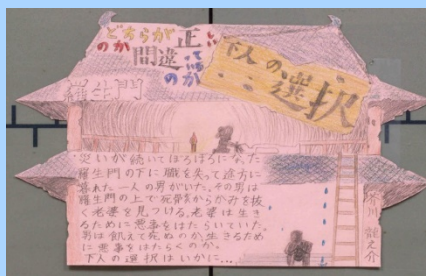 どちらが正しい
のか間違っているのか
下人の選択
羅生門
災いが続いてぼろぼろになった
羅生門の下に職を失って途方に
暮れた一人の男がいた。その男は
羅生門の上で死骸からかみを抜
く老婆を見つける。老婆は生き
るために悪事をはたらいていた。
男は飢えて死ぬのか生きるため
に悪事をはたらくのか。
下人の選択はいかに…
芥川 龍之介